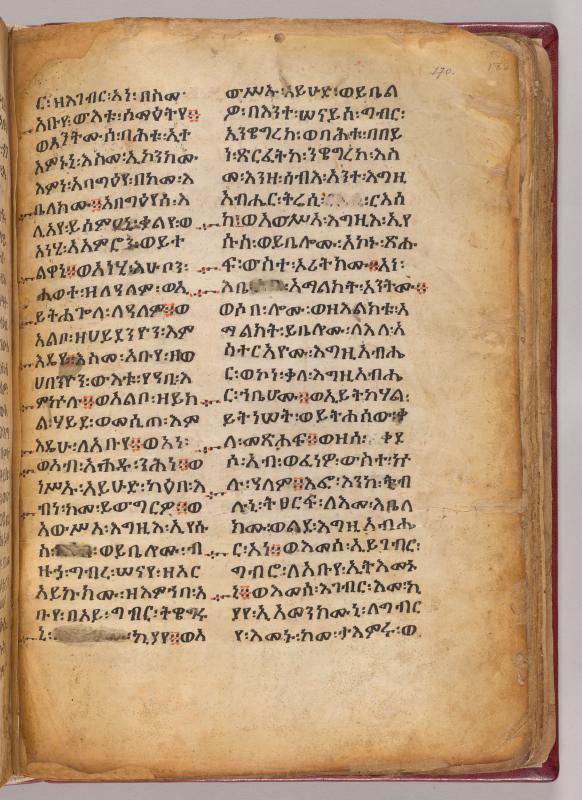 170.
ር፡ዘእገብር፡አነ፡በስመ፡
አቡየ፡ውእቱ፡ሰማዕትየ፨
ወአንትሙ፡ሰ፡በሕቱ፡ኢተ
አምኑኒ፡እስመ፡ኢኮንክሙ፡
እምነ፡አባግዕየ፡በከመ፡እ
ቤለክሙ፨አባግዕየ፡ሰ፡እ
ሊአየ፡ይሰምዑኒ፡ቃልየ፡ወ
አነሂ፡አአምሮን፡ወይተ
ልዋኒ፨ወአነሂ፡እሁቦን፡
ሒወተ፡ዘለዓለም፡ወኢ
ይትሐጐላ፡ለዓለም፨ወ
አልቦ፡ዘሀይደንዮን፡እም
እዴየ፡እስመ፡አቡየ፡ዘወ
ሀበንዮን፡ውእቱ፡የዓቢ፡እ
ምኵሉ፨ወአልቦ፡ዘይክ
ል፡ሃይደ፡ወመሲጠ፡እም
እዴሁ፡ለአቡየ፨ወአነ፡
ወአብ፡አሐዱ፡ንሕነ፨ወ
ነሥኡ፡አይሁድ፡ካዕበ፡እ
ብነ፡ከመ፡ይወግርዎ፨ወ
አውሥአ፡እግዚእ፡ኢየሱ
ስ፡ ፡ወይቤሎሙ፡ብ
ዙኃ፡ግብረ፡ሠናየ፡ዘአር
አይኩክሙ፡ዘእምኀበ፡አ
ቡየ፡በአይ፡ግብር፡ትዌግሩ
ኒ፡ ኪያየ፨ወአ
ውሥኡ፡አይሁድ፡ወይቤል
ዎ፡በእንተ፡ሠናይሰ፡ግብር፡
ኢንዌግረከ፡ወበሕቱ፡በበይ
ነ፡ጽርፈትከ፡ንዌግረከ፡እስ
መ፡እንዘ፡ሰብእ፡አንተ፡እግዚ
አብሔር፡ትሬሲ፡ ርእሰ
ከ፨ወአውሥአ፡እግዚእ፡ኢየ
ሱስ፡ወይቤሎሙ፡አኮኑ፡ጽሑ
ፍ፡ውስተ፡ኦሪትክሙ፨አነ፡
እቤ ፡አማልክት፡አንትሙ፨
ወሶበ፡ሎሙ፡ወዘእልክቱ፡አ
ማልክት፡ይቤሎሙ፡ለእለ፡አ
ስተርእዮሙ፡እግዚአብሔ
ር፡ወኮነ፡ቃለ፡እግዚአብሔ
ር፡ኀቤሆሙ፨ወኢይትከሃል፡
ይትነሠት፡ወይትሐሰው፡ቃ
ለ፡መጽሐፍ፨ወዘሰ፡ቀደ
ሶ፡አብ፡ወፈነዎ፡ውስተ፡ኵ
ሉ፡ዓለም፨እፎ፡እንከ፡ትብ
ሉኒ፡ትፀርፍ፡ለእመ፡እቤለ
ክሙ፡ወልደ፡እግዚአብሔ
ር፡አነ፨ወእመሰ፡ኢይገብር፡
ግብሮ፡ለአቡየ፡ኢትእመኑ
ኒ፨ወእመሰ፡እገብር፡እመ፡ኪ
ያየ፡ኢአመንክሙኒ፡ለግብር
የ፡እመኑ፡ከመ፡ታእምሩ፡ወ